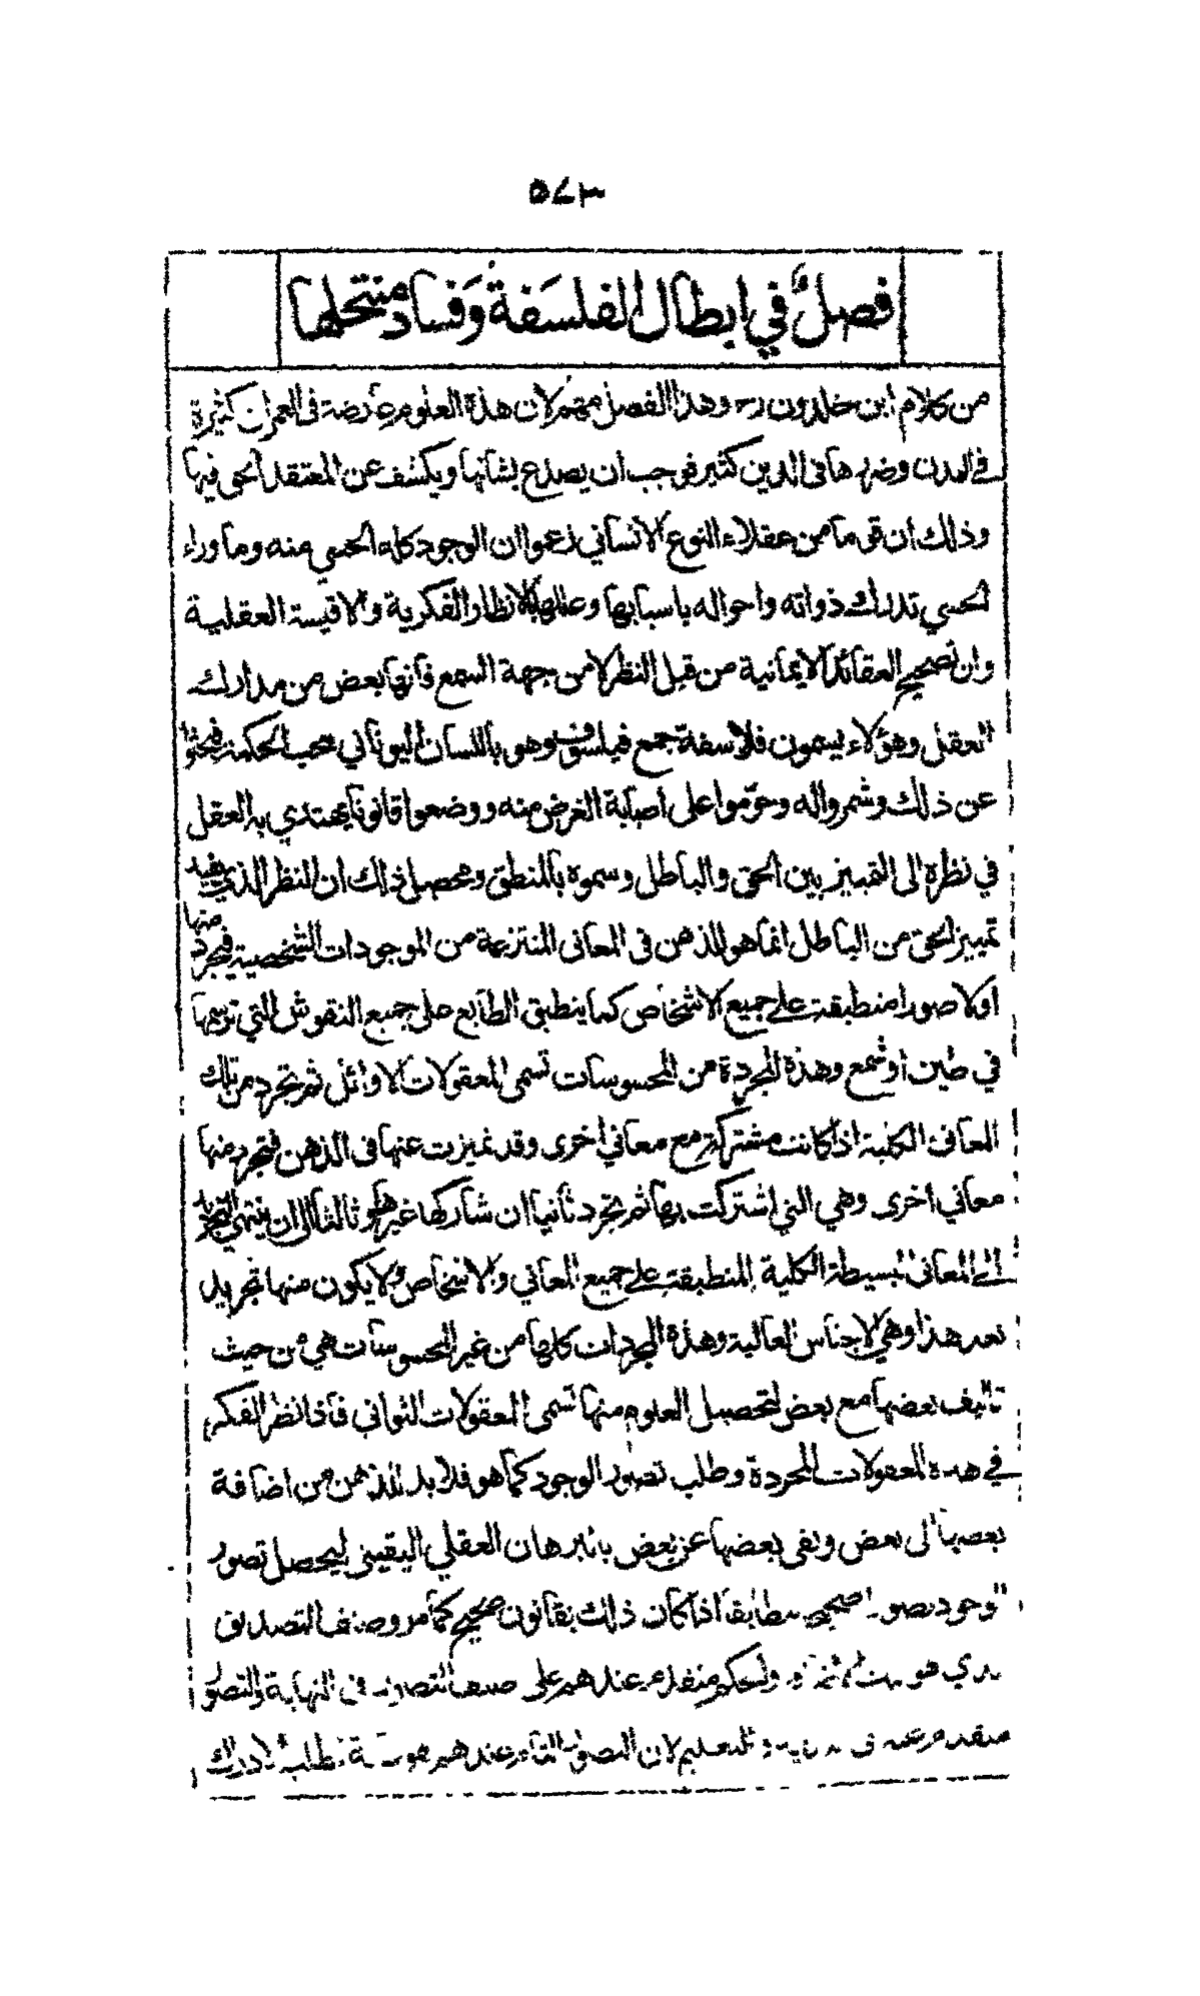 ٥٧٣
فصل في ابطال الفلسفة وفساد منتحلها
من كلام ابن خلدون رح وهذا الفصل مهم لان هذة العلوم عارضة فى العمران كثيرة
في المدن وضررها فى الدين كثير فوجب ان يصدع بشانها ويكشف عن المعتقد الحق فيها
وذلك ان قوما من عقلاء النوع الانساني زعموا ان الوجود كله الحسي منه وما وراء
الحسي تدرك ذواته واحواله باسبابها وعللها بالانظار الفكرية والاقيسة العقلية
وان تصحيح العقائد الايمانية من قبل النظر لا من جهة السمع فانها بعض من مدارك
العقل وهؤلاء يسمون فلاسفة جمع فيلسوف وهو باللسان اليوناني محب الحكمة فبحثوا
عن ذلك وشمروا له وحوموا على اصابة الغرض منه ووضعوا قانونا يهتدي به العقل
في نظرة الى التمييز بين الحق والباطل وسموة بالمنطق ومحصل ذلك ان النظر الذي يفيد
تمييز الحق من الباطل انما هو للذهن فى المعانى المنتزعة من الموجودات الشخصية فيجرد منها
اولا صورا منطبقة على جميع الاشخاص كما ينطبق الطابع على جميع النقوش التي ترسمها
في طين او شمع وهذة المجردة من المحسوسات تسمى المعقولات الاوائل ثم تجرد من تلك
المعانى الكلية اذا كانت مشتركة مع معاني اخرى وقد تميزت عنها فى الذهن فتجرد منها
معاني اخرى وهي التي اشتركت بها ثم تجرد ثانيا ان شاركها غيرها وثالثا الى ان ينتهي التجريد
الى المعانى البسيطة الكلية المنطبقة على جميع المعاني والاشخاص ولا يكون منها تجريد
بعد هذا وهي الاجناس العالية وهذة المجردات كلها من غير المحسوسات هي من حيث
تاليف بعضها مع بعض لتحصيل العلوم منها تسمى المعقولات الثواني فاذا نظر الفكر
في هذه المعقولات المجردة وطلب تصور الوجود كما هو فلا بد للذهن من اضافة
بعضها الى بعض ونفى بعضها عن بعض بالبرهان العقلي اليقينى ليحصل تصور
الوجود تصورا صحيحا مطابقا اذا كان ذلك بقانون صحيح كما مر وصنف التصديق
الذي هو والحكم متقدم عندهم على صنف التصور فى النهاية والتصور
متقدم عليه فى والتعليم لان التصور التام عندهم هو لطلب الادراك